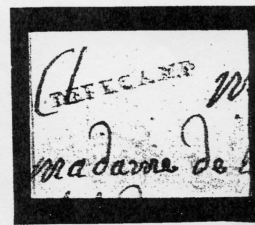 DEFECAMP
M
Madame de l